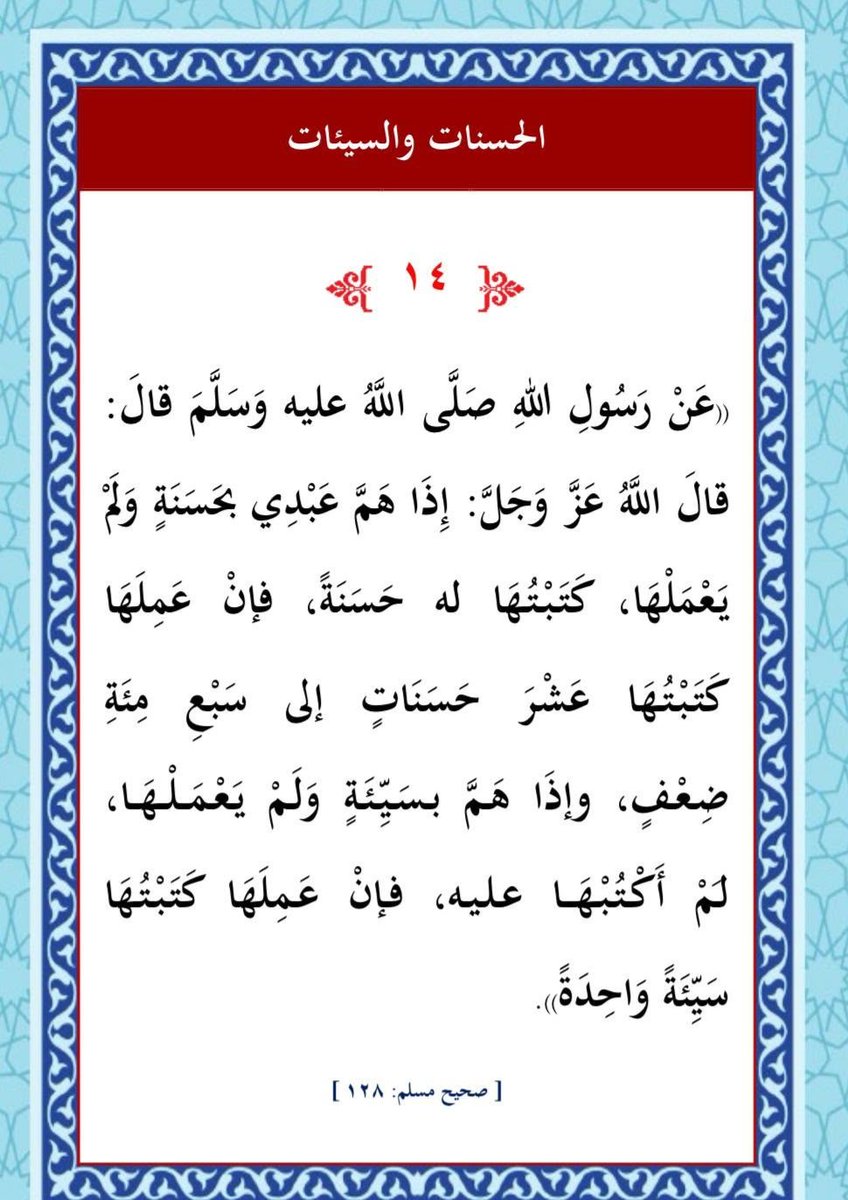 الحسنات والسيئات
١٤
((عَنْ رَسُولِ اللهِ صَلَّى اللَّهُ عليه وَسَلَّمَ قالَ:
قالَ اللَّهُ عَزَّ وَجَلَّ: إِذَا هَمَّ عَبْدِي بحَسَنَةٍ وَلَمْ
يَعْمَلْهَا، كَتَبْتُهَا له حَسَنَةً، فإنْ عَمِلَهَا
كَتَبْتُهَا عَشْرَ حَسَنَاتٍ إلى سَبْعِ مِئَةِ
ضِعْفٍ، وإذَا هَمَّ بسَيِّئَةٍ وَلَمْ يَعْمَلْهَا،
لَمْ أَكْتُبْهَا عليه، فإنْ عَمِلَهَا كَتَبْتُهَا
سَيِّئَةً وَاحِدَةً)).
[ صحيح مسلم: ١٢٨ ]